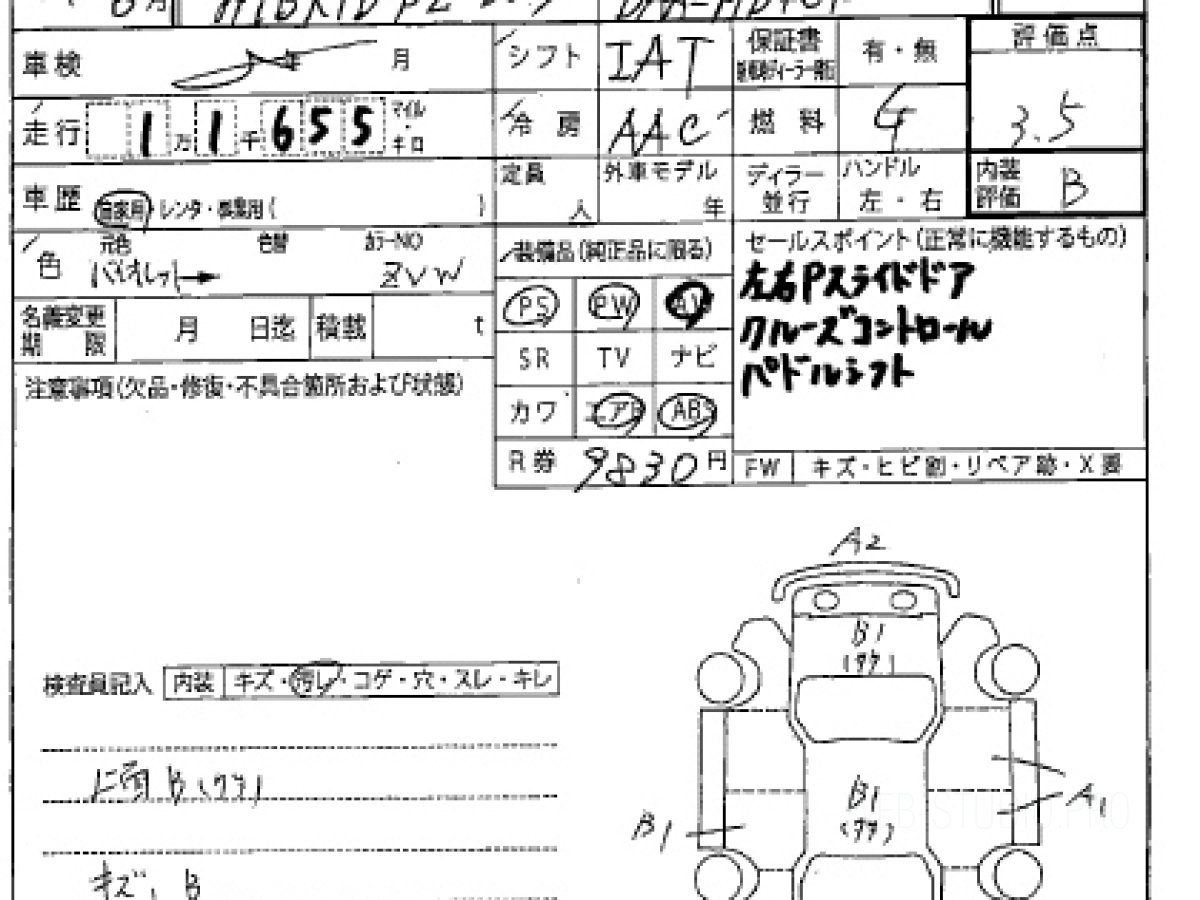 6月 HYBRID PZ
車検 年 月 シフト IAT 保証書 有・無 評価点
新車時ディーラー発行
走行 1万1千655 マイル・キロ 冷房 AAC 燃料 G 3.5
車歴 自家用・レンタ・事業用( ) 定員 人 外車モデル 年 ディラー並行 ハンドル 左・右 内装評価 B
色 元色 バイオレット 色替 カラーNO ZVW 装備品(純正品に限る) セールスポイント(正常に機能するもの)
PS PW AW 左右Pスライドドア
名義変更期限 月 日迄 積載 t SR TV ナビ クルーズコントロール
注意事項(欠品・修復・不具合箇所および状態) カワ エアB ABS パドルシフト
R券 9830円 FW キズ・ヒビ割・リペア跡・X要
A2
B1
(ワケ)
検査員記入 内装 キズ・汚レ・コゲ・穴・スレ・キレ
上面 B(ワケ)
B1
(ワケ)
B1
A1
キズ、B